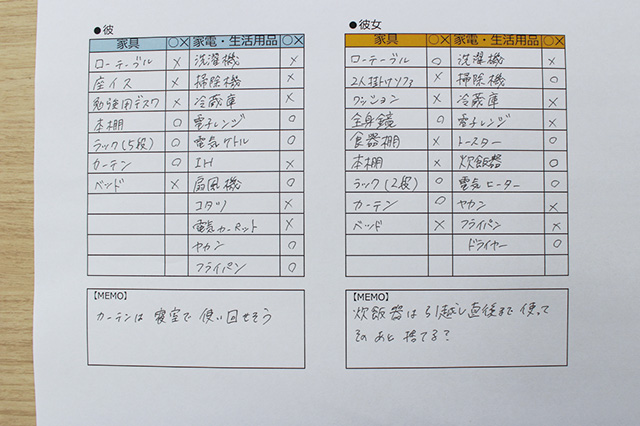 ●彼
家具 ○× 家電・生活用品 ○×
ローテーブル × 洗濯機 ×
座イス × 掃除機 ×
勉強用デスク × 冷蔵庫 ×
本棚 ○ 電子レンジ ○
ラック(5段) ○ 電気ケトル ○
カーテン ○ IH ×
ベッド × 扇風機 ○
コタツ ×
電気カーペット ×
ヤカン ○
フライパン ○
【MEMO】
カーテンは寝室で使い回せそう
●彼女
家具 ○× 家電・生活用品 ○×
ローテーブル ○ 洗濯機 ×
2人掛けソファ × 掃除機 ○
クッション × 冷蔵庫 ×
全身鏡 ○ 電子レンジ ×
食器棚 × トースター ○
本棚 × 炊飯器 ○
ラック(2段) ○ 電気ヒーター ○
カーテン ○ ヤカン ×
ベッド × フライパン ×
ドライヤー ○
【MEMO】
炊飯器は引越し直後まで使って
そのあと捨てる?